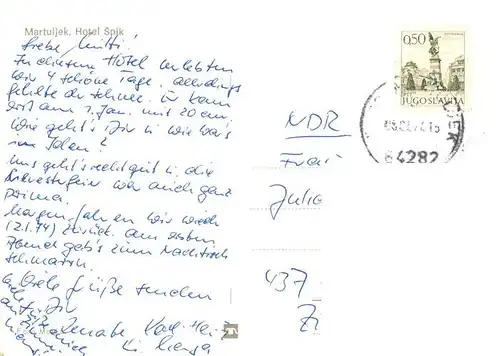 Martuljek, Hotel Špik
Liebe Mutti!
In diesem Hotel verlebten
wir 4 schöne Tage. Allerdings
fehlte der Schnee. Er kam
erst am 1. Jan. mit 20 cm.
Wie geht's Dir u. wie war's
in Polen?
Uns geht's recht gut u. die
Silvesterfeier war auch ganz
prima.
Morgen fahren wir wieder
(2.1.74) zurück. Am ersten
Abend gab's zum Nachtisch
Schmarrn.
Viele Grüße senden
Dir
Renate Karl-Heinz
u.
0,50
JUGOSLAVIJA
64282
NDR
Frau
Julia
437